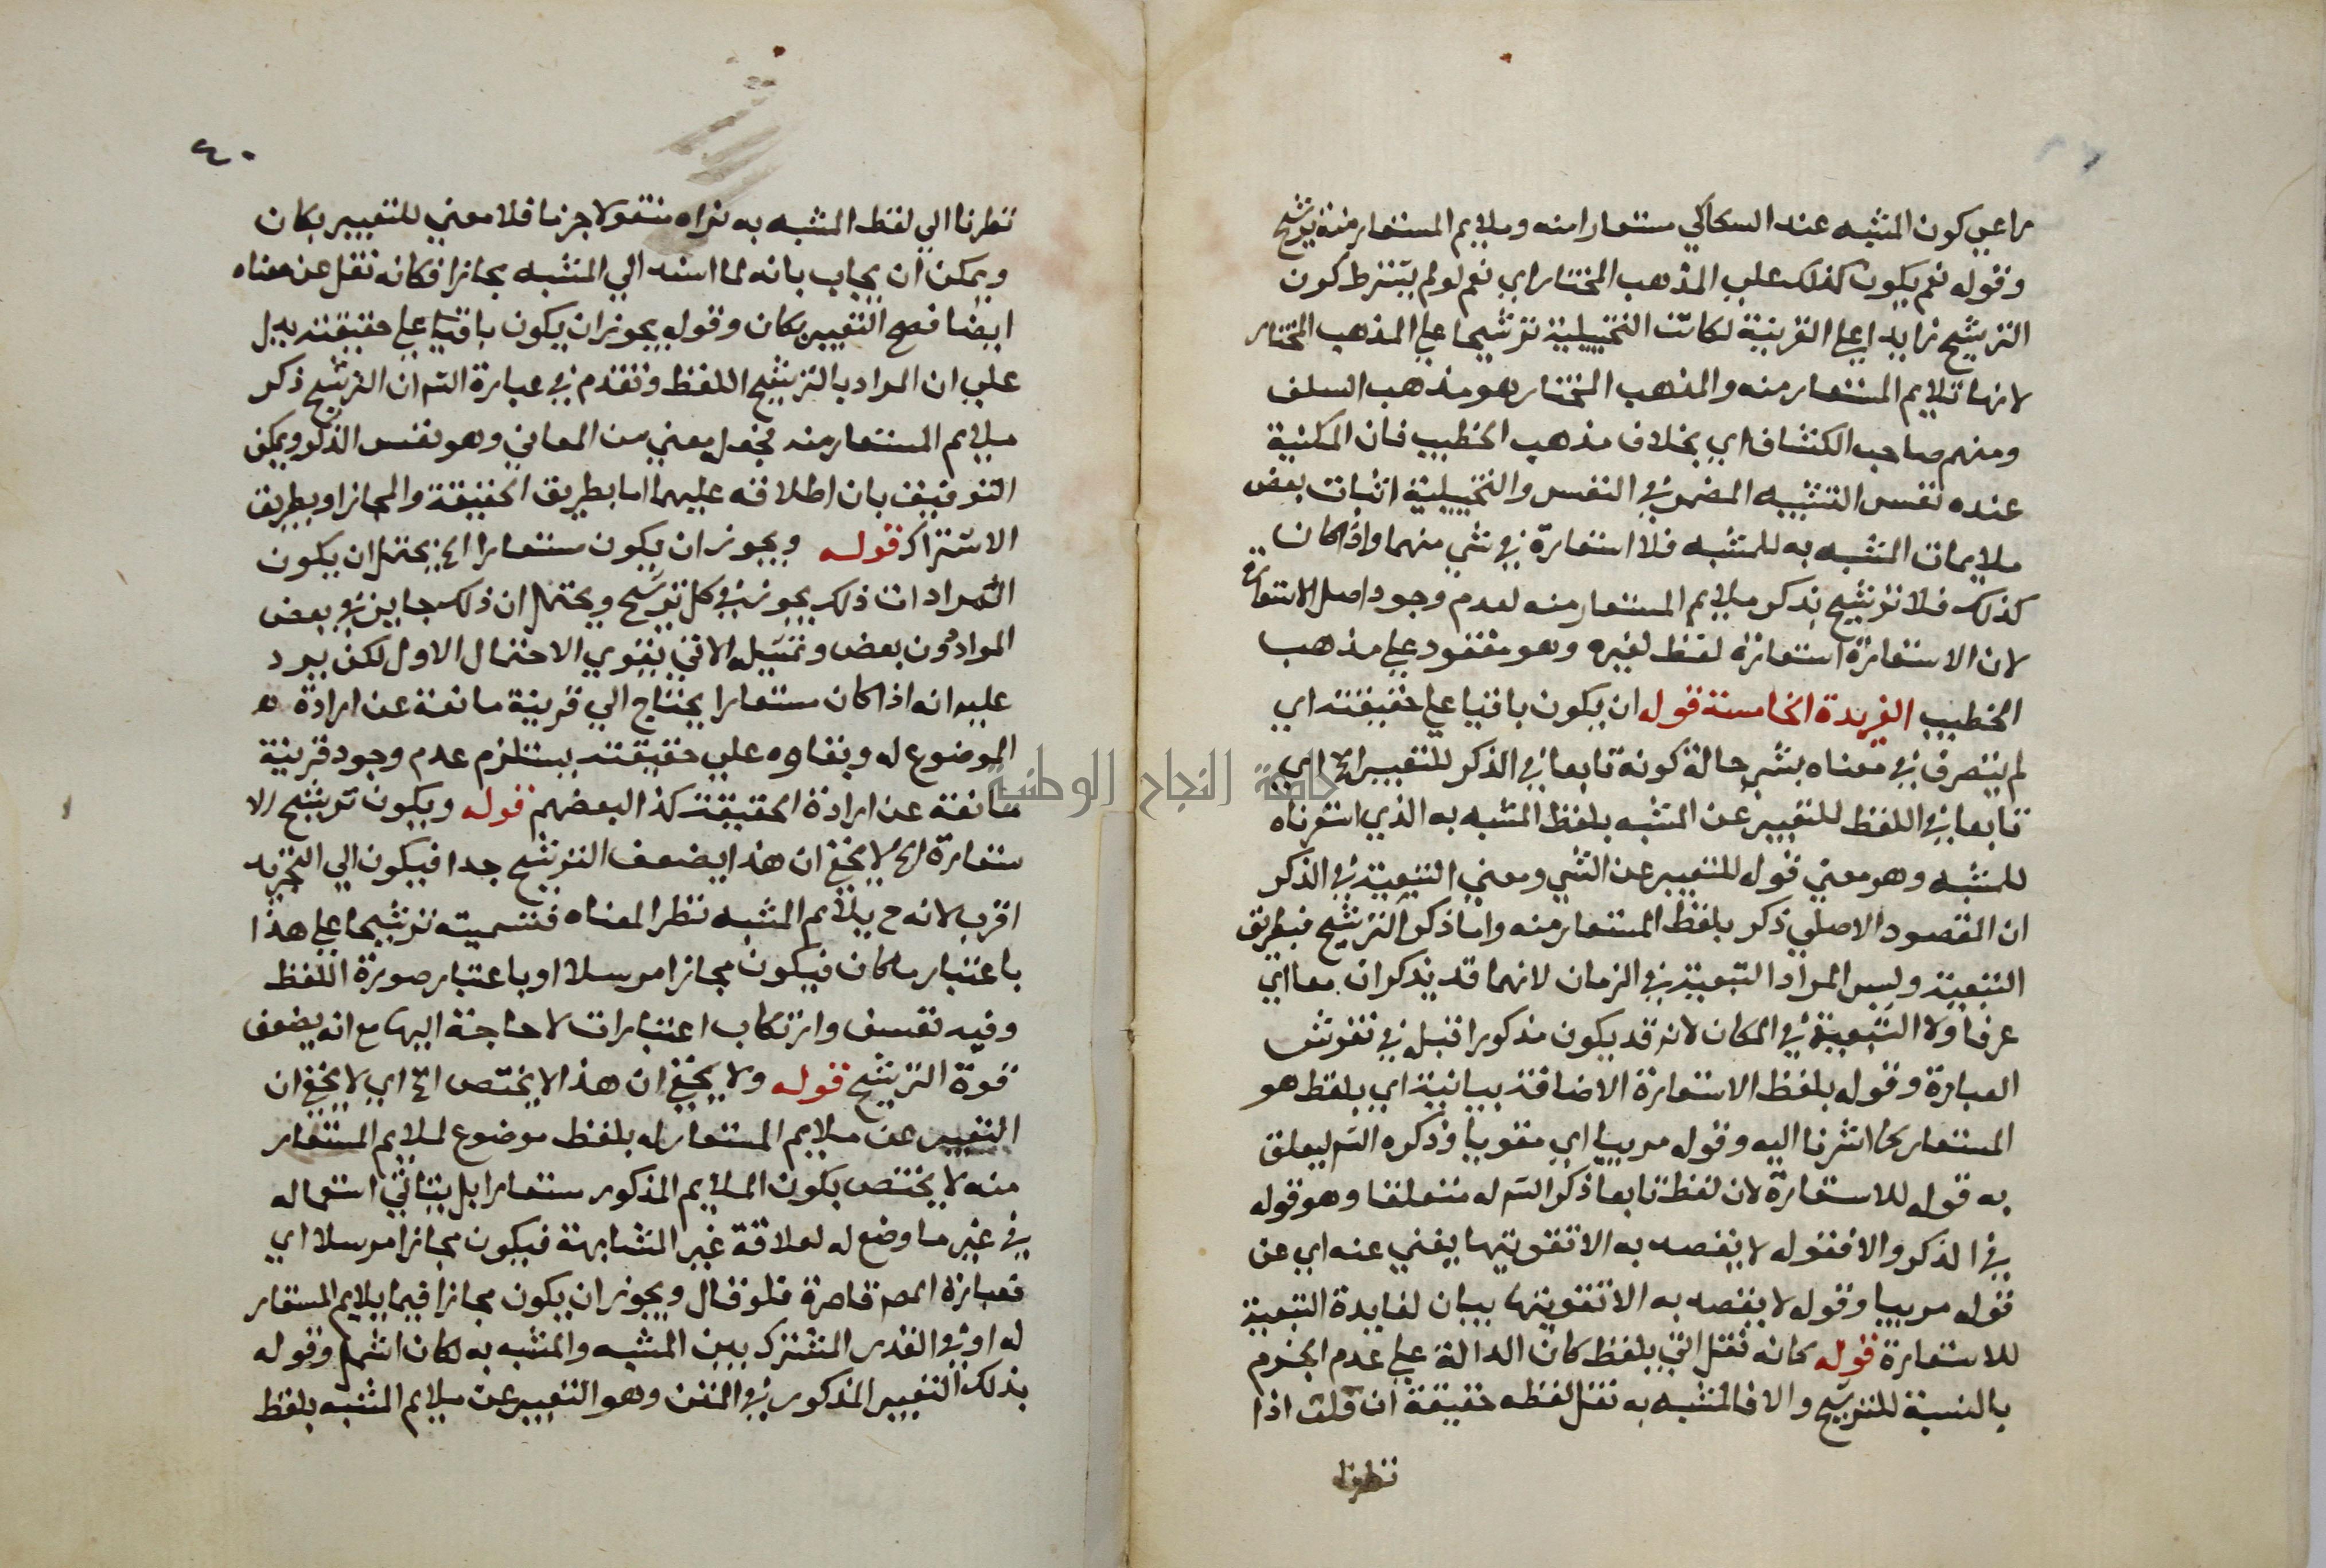 راعي كون المشبه عند السكاكي مستعارا منه وملايم المستعار منه ترشيح
وقوله نعم يكون كذلك علي المذهب المختار اي نعم لو لم يشترط كون
الترشيح زايدا علي القرينة لكانت التخييلية ترشيحا علي المذهب المختار
لانها تلايم المستعار منه والمذهب المختار هو مذهب السلف
ومنهم صاحب الكشاف اي بخلاف مذهب الخطيب فان المكنية
عنده نفس التشبيه المضمر في النفس والتخييلية اثبات بعض
ملايمات المشبه به للمشبه فلا استعارة في شي منهما واذا كان
كذلك فلا ترشيح بذكر ملايم المستعار منه لعدم وجود اصل الاستعارة
لان الاستعارة استعارة لفظ لغيره وهو مفقود علي مذهب
الخطيب الفريدة الخامسة قوله ان يكون باقيا علي حقيقته اي
لم يتصرف في معناه بشي حالة كونه تابعا في الذكر للتعبير الخ اي
تابعا في اللفظ للتعبير عن المشبه بلفظ المشبه به الذي استعرناه
للمشبه وهو معني قوله للتعبير عن الشي ومعني التبعية في الذكر
ان المقصود الاصلي ذكر بلفظ المستعار منه واما ذكر الترشيح فبطريق
التبعية وليس المراد التبعية في الزمان لانهما قد يذكران معا اي
عرفا ولا التبعية في المكان لانه قد يكون مذكورا قبل في نقوش
العبارة وقوله بلفظ الاستعارة الاضافة بيانية اي بلفظ هو
المستعار كما اشرنا اليه وقوله مربيا اي مقويا وذكره الش ليعلق
به قوله للاستعارة لان لفظ تابعا ذكر الش له متعلقا وهو قوله
في الذكر والا فقوله لا يقصد به الا تقويتها يغني عنه اي عن
قوله مربيا وقوله لا يقصد به الا تقويتها بيان لفايدة التبعية
للاستعارة قوله كانه نقل اتي بلفظ كان الدالة علي عدم الجزم
بالنسبة للترشيح والا فالمشبه به نقل لفظه حقيقة ان قلت اذا
نظرنا
٤٠
نظرنا الي لفظ المشبه به نراه منقولا جزما فلا معني للتعبير بكان
ويمكن ان يجاب بانه لما اسند الي المشبه مجازا فكانه نقل عن معناه
ايضا فصح التعبير بكان وقوله يجوز ان يكون باقيا علي حقيقته يدل
علي ان المراد بالترشيح اللفظ وتقدم في عبارة الش ان الترشيح ذكر
ملايم المستعار منه فجعل معني من المعاني وهو نفس الذكر ويمكن
التوفيق بان اطلاقه عليهما اما بطريق الحقيقة والمجاز او بطريق
الاشتراك قوله ويجوز ان يكون مستعارا الخ يحتمل ان يكون
المراد ان ذلك يجوز في كل ترشيح ويحتمل ان ذلك جايز في بعض
المواد دون بعض وتمثيله الاتي يقوي الاحتمال الاول لكن يرد
عليه انه اذا كان مستعارا يحتاج الي قرينة مانعة عن ارادة
الموضوع له وبقاوه علي حقيقته يستلزم عدم وجود قرينة
مانعة عن ارادة الحقيقة كذا لبعضهم قوله ويكون ترشيح الا
ستعارة الخ لا يخفي ان هذا يضعف الترشيح جدا فيكون الي التجريد
اقرب لانه ح يلايم المشبه نظرا لمعناه فتسميته ترشيحا علي هذا
باعتبار ما كان فيكون مجازا مرسلا او باعتبار صورة اللفظ
وفيه تعسف وارتكاب اعتبارات لا حاجة اليها مع انه يضعف
قوة الترشيح قوله ولا يخفي ان هذا لا يختص الخ اي لا يخفي ان
التعبير عن ملايم المستعار له بلفظ موضوع لملايم المستعار
منه لا يختص بكون الملايم المذكور مستعارا بل يتاتي استعماله
في غير ما وضع له لعلاقة غير المشابهة فيكون مجازا مرسلا اي
فعبارة المص قاصرة فلو قال ويجوز ان يكون مجازا فيما يلايم المستعار
له او في القدر المشترك بين المشبه والمشبه به لكان اشمل وقوله
بذلك التعبير المذكور في المتن وهو التعبير عن ملايم المشبه بلفظ
جامعة النجاح الوطنية